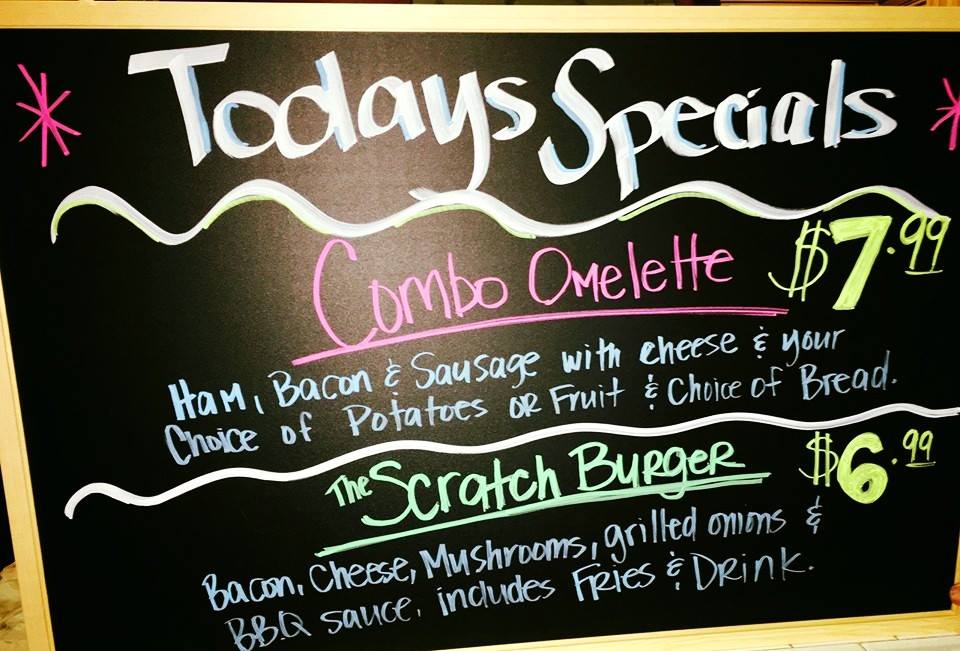 Todays Specials
Combo Omelette $7.99
Ham, Bacon & Sausage with cheese & your
Choice of Potatoes or Fruit & Choice of Bread.
The Scratch Burger $6.99
Bacon, Cheese, Mushrooms, grilled onions &
BBQ sauce, includes Fries & Drink.